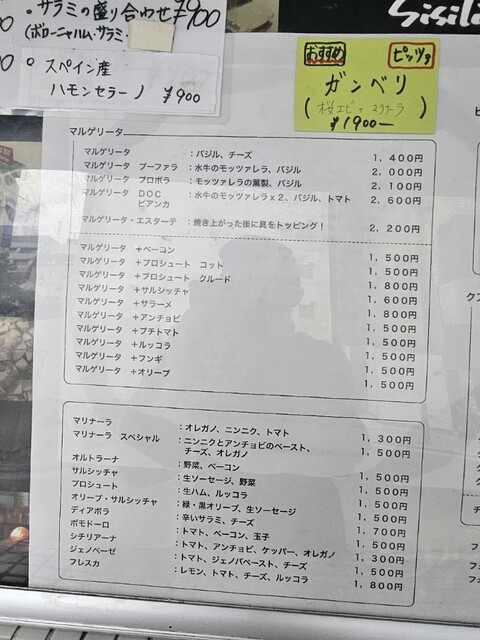 ・サラミの盛り合わせ ¥900
(ボローニャハム・サラミ・
・スペイン産
ハモンセラーノ ¥900
Sisil
おすすめ ピッツァ
ガンベリ
(桜エビ+マリナーラ)
¥1900ー
マルゲリータ
マルゲリータ :バジル、チーズ 1,400円
マルゲリータ ブーファラ :水牛のモッツァレラ、バジル 2,000円
マルゲリータ プロボラ :モッツァレラの薫製、バジル 2,100円
マルゲリータ DOC :水牛のモッツァレラx2、バジル、トマト 2,600円
ビアンカ
マルゲリータ・エスターテ :焼き上がった後に具をトッピング! 2,200円
マルゲリータ +ベーコン 1,500円
マルゲリータ +プロシュート コット 1,500円
マルゲリータ +プロシュート クルード 1,800円
マルゲリータ +サルシッチャ 1,600円
マルゲリータ +サラーメ 1,800円
マルゲリータ +アンチョビ 1,500円
マルゲリータ +プチトマト 1,500円
マルゲリータ +ルッコラ 1,500円
マルゲリータ +フンギ 1,500円
マルゲリータ +オリーブ 1,500円
マリナーラ :オレガノ、ニンニク、トマト 1,300円
マリナーラ スペシャル :ニンニクとアンチョビのペースト、 1,500円
チーズ、オレガノ
オルトラーナ :野菜、ベーコン 1,500円
サルシッチャ :生ソーセージ、野菜 1,500円
プロシュート :生ハム、ルッコラ 1,500円
オリーブ・サルシッチャ :緑・黒オリーブ、生ソーセージ 1,500円
ディアボラ :辛いサラミ、チーズ 1,700円
ポモドーロ :トマト、ベーコン、玉子 1,500円
シチリアーナ :トマト、アンチョビ、ケッパー、オレガノ 1,300円
ジェノベーゼ :トマト、ジェノバペースト、チーズ 1,500円
フレスカ :レモン、トマト、チーズ、ルッコラ 1,800円